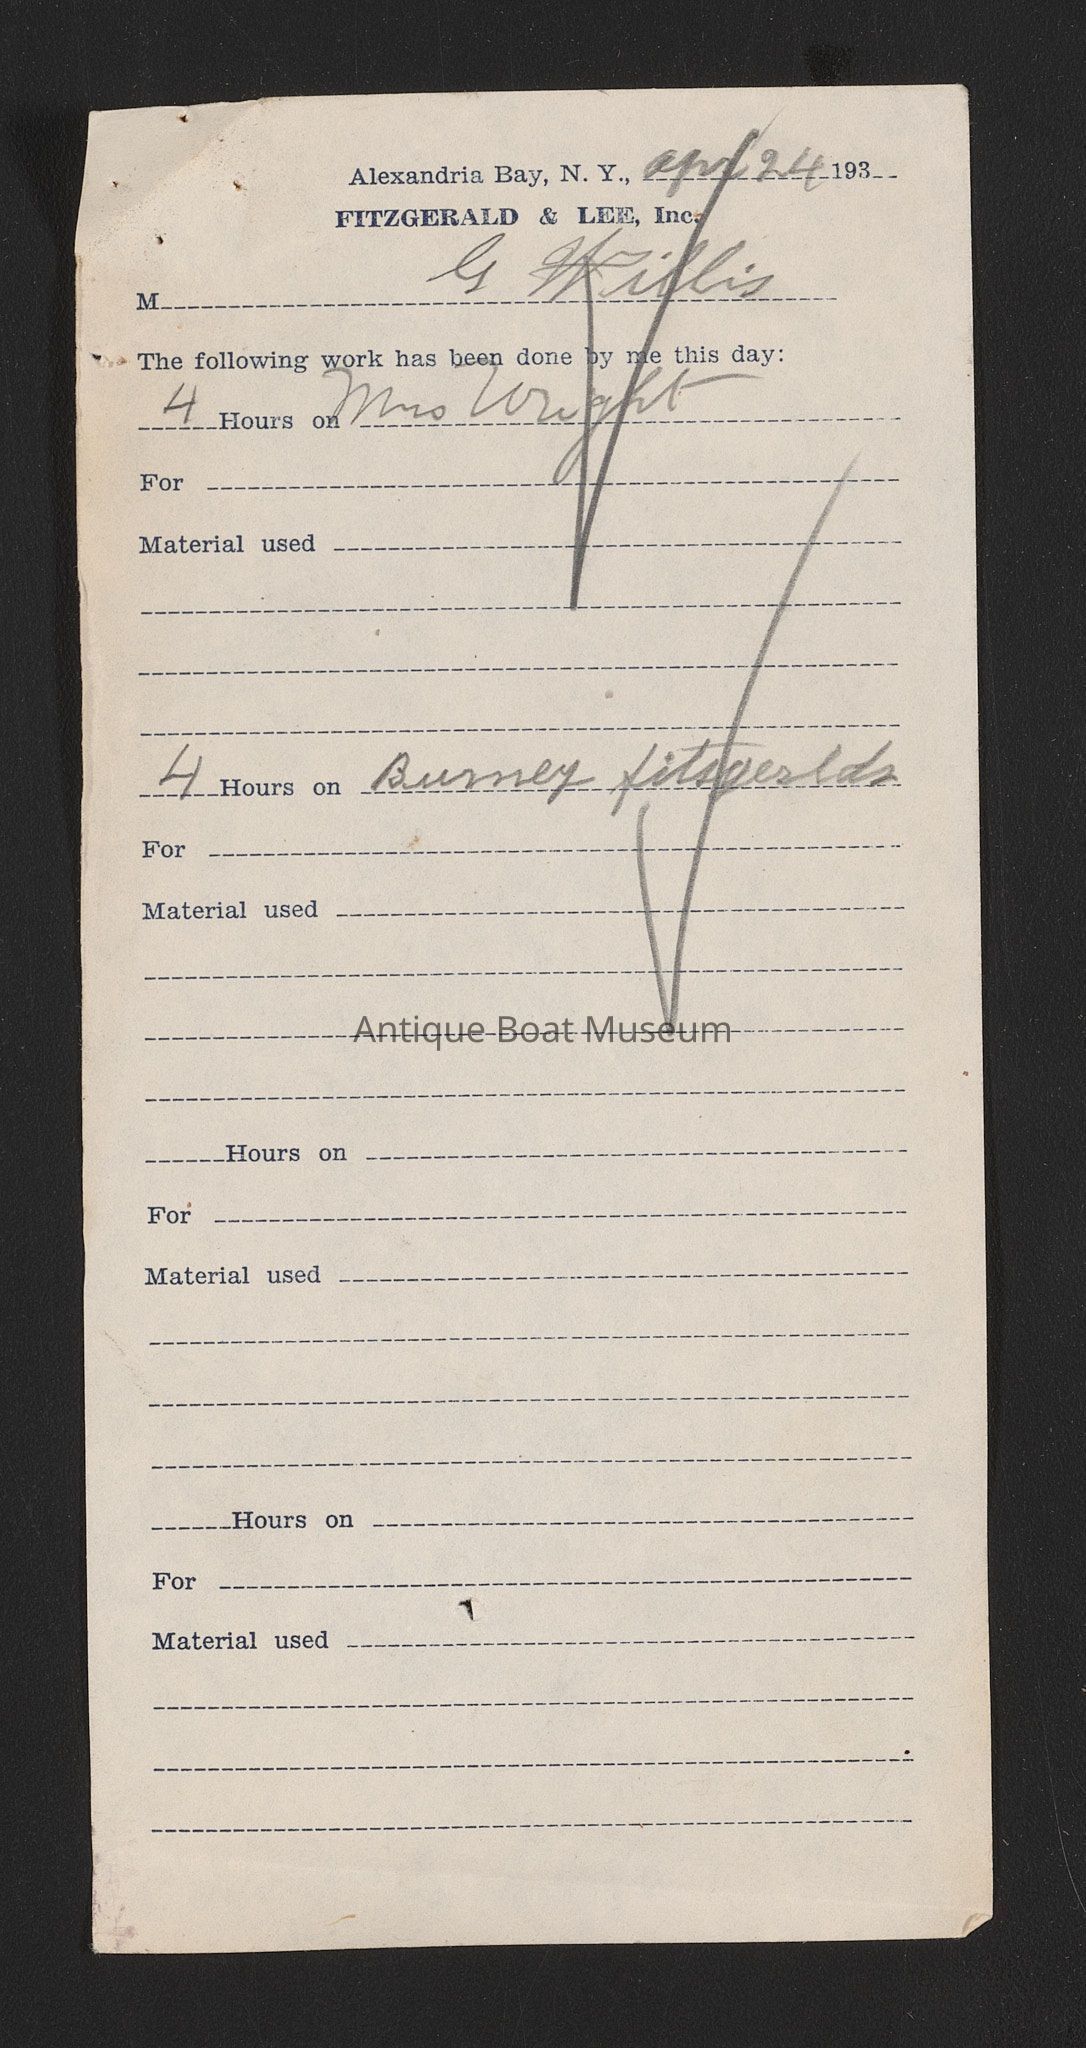 Alexandria Bay, N. Y., Apr 24 193
FITZGERALD & LEE, Inc.
M G Willis
The following work has been done by me this day:
4 Hours on Mrs Wright
For
Material used
4 Hours on Burney fitsgerlds
For
Material used
Antique Boat Museum
Hours on
For
Material used
Hours on
For
Material used